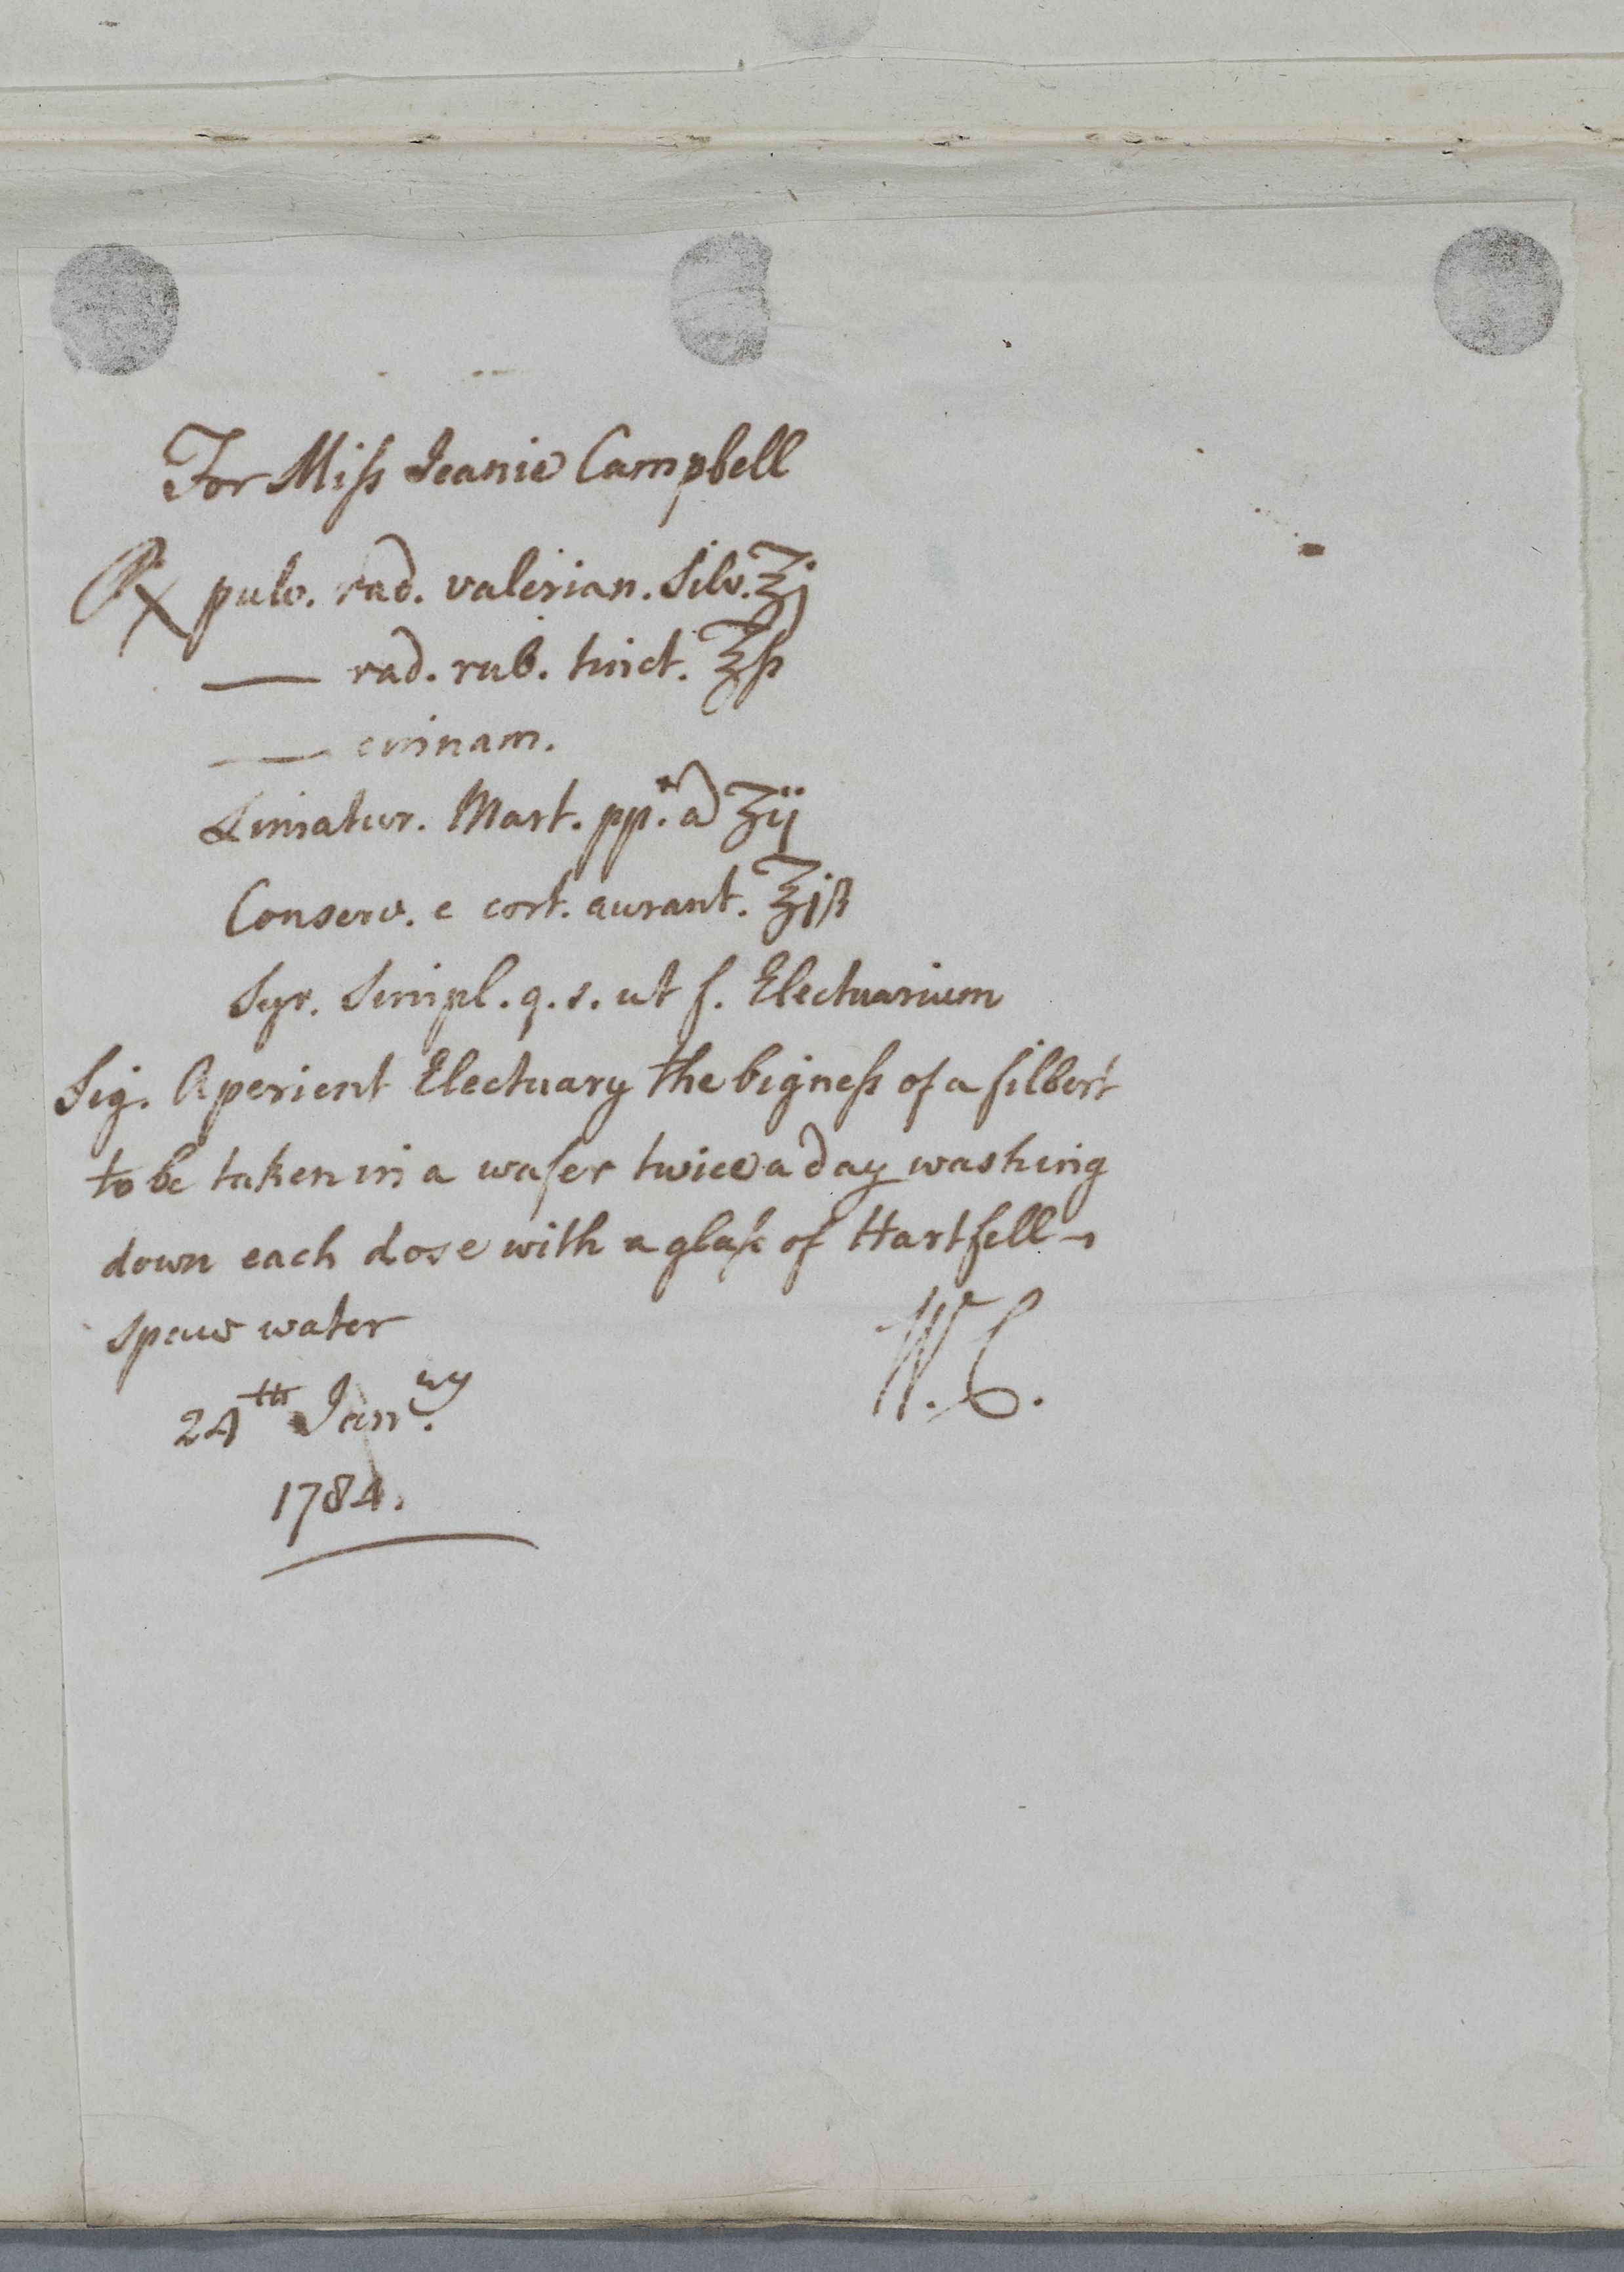 For Miſs Jeanie Campbell
℞ pulv. rad. valerian. Silv. ℥j
— rad. rub. tinct. ℥ſs
— cinnam.
Limatur. Mart. ppᵗ. a ʒij
Conserv. e cort. aurant. ℥jß
Syr. Simpl. q. s. ut f. Electuarium
Sig. Aperient Electuary the bigneſs of a filbert
to be taken in a wafer twice a day washing
down each dose with a glaſs of Hartfell
spaw water
W. C.
24th Janry.
1784.